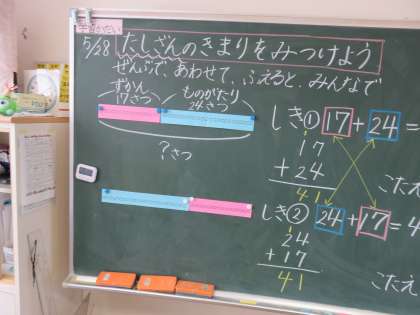 5/28 たしざんのきまりをみつけよう
ぜんぶで、あわせて、ふえると、みんなで
ずかん
17さつ
ものがたり
24さつ
?さつ
しき① 17+24=
1
17
+24
41
こたえ
しき② 24+17=4
1
24
+17
41
こたえ